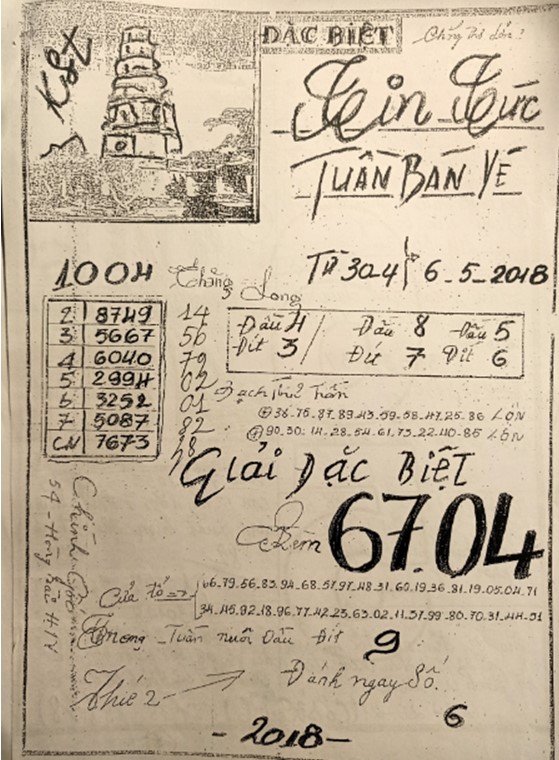 ĐẶC BIỆT
Tin Tức
TUẦN BÁN VÉ
Từ 30-4 6-5-2018
1004 Thăng Long
2 8749 14
3 5667 56
4 6040 79
5 2994 02
6 3252 01
7 5087 82
CN 7673
Đầu 4 Đầu 8 Đầu 5
Đít 3 Đít 7 Đít 6
Bạch Thủ Trần
38-75-87-89-43-59-58-47-25-86 LỚN
90-30-14-28-54-61-73-22-40-85 LỚN
GIẢI ĐẶC BIỆT
67.04
Cửa tổ => 66-79-56-83-94-68-57-97-48-31-60-19-36-81-19-05-04-71
34-45-92-18-96-77-42-23-63-02-11-37-99-80-70-31-44-51
Trong Tuần nuôi Đầu Đít 9
Thứ 2 Đánh ngay Số
6
- 2018 -